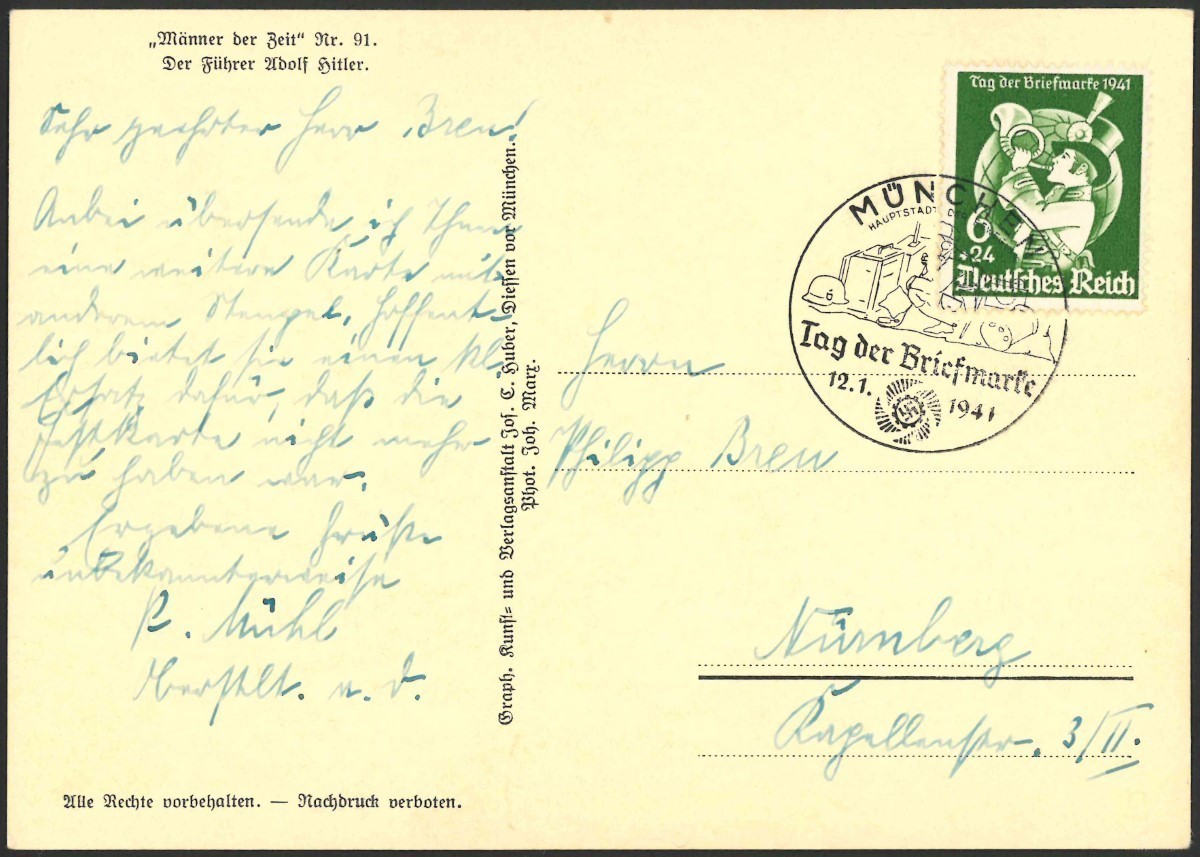 „Männer der Zeit“ Nr. 91.
Der Führer Adolf Hitler.
Sehr geehrter Herr Breu!
Anbei übersende ich Ihnen
eine weitere Karte mit
anderem Stempel, hoffent-
lich bietet sie einen kl.
Ersatz dafür, daß die
Festkarte nicht mehr
zu haben war.
Ergebene Grüße
unbekannterweise
P. Mühl
Oberstlt. a. D.
Alle Rechte vorbehalten. — Nachdruck verboten.
Graph. Kunst- und Verlagsanstalt Jos. C. Huber, Diessen vor München.
Phot. Joh. Marx.
Tag der Briefmarke 1941
6
+24
Deutsches Reich
MÜNCHEN
HAUPTSTADT DER
Tag der Briefmarke
12.1. 1941
Herrn
Philipp Breu
Nürnberg
Kapellenstr. 3/II.